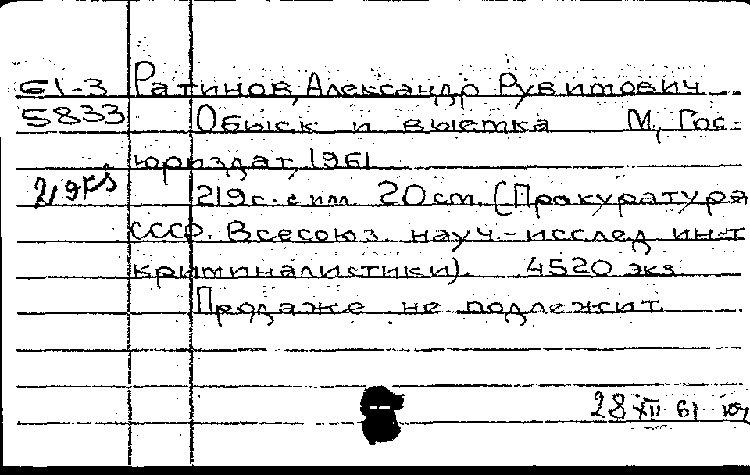 61-3 Ратинов, Александр Рувимович
5833 Обыск и выемка М, Гос-
юриздат, 1961
219с. с илл. 20см. (Прокуратура
СССР. Всесоюз. науч.-исслед ин-т
криминалистики). 4520 экз
Продаже не подлежит
28 XII 61